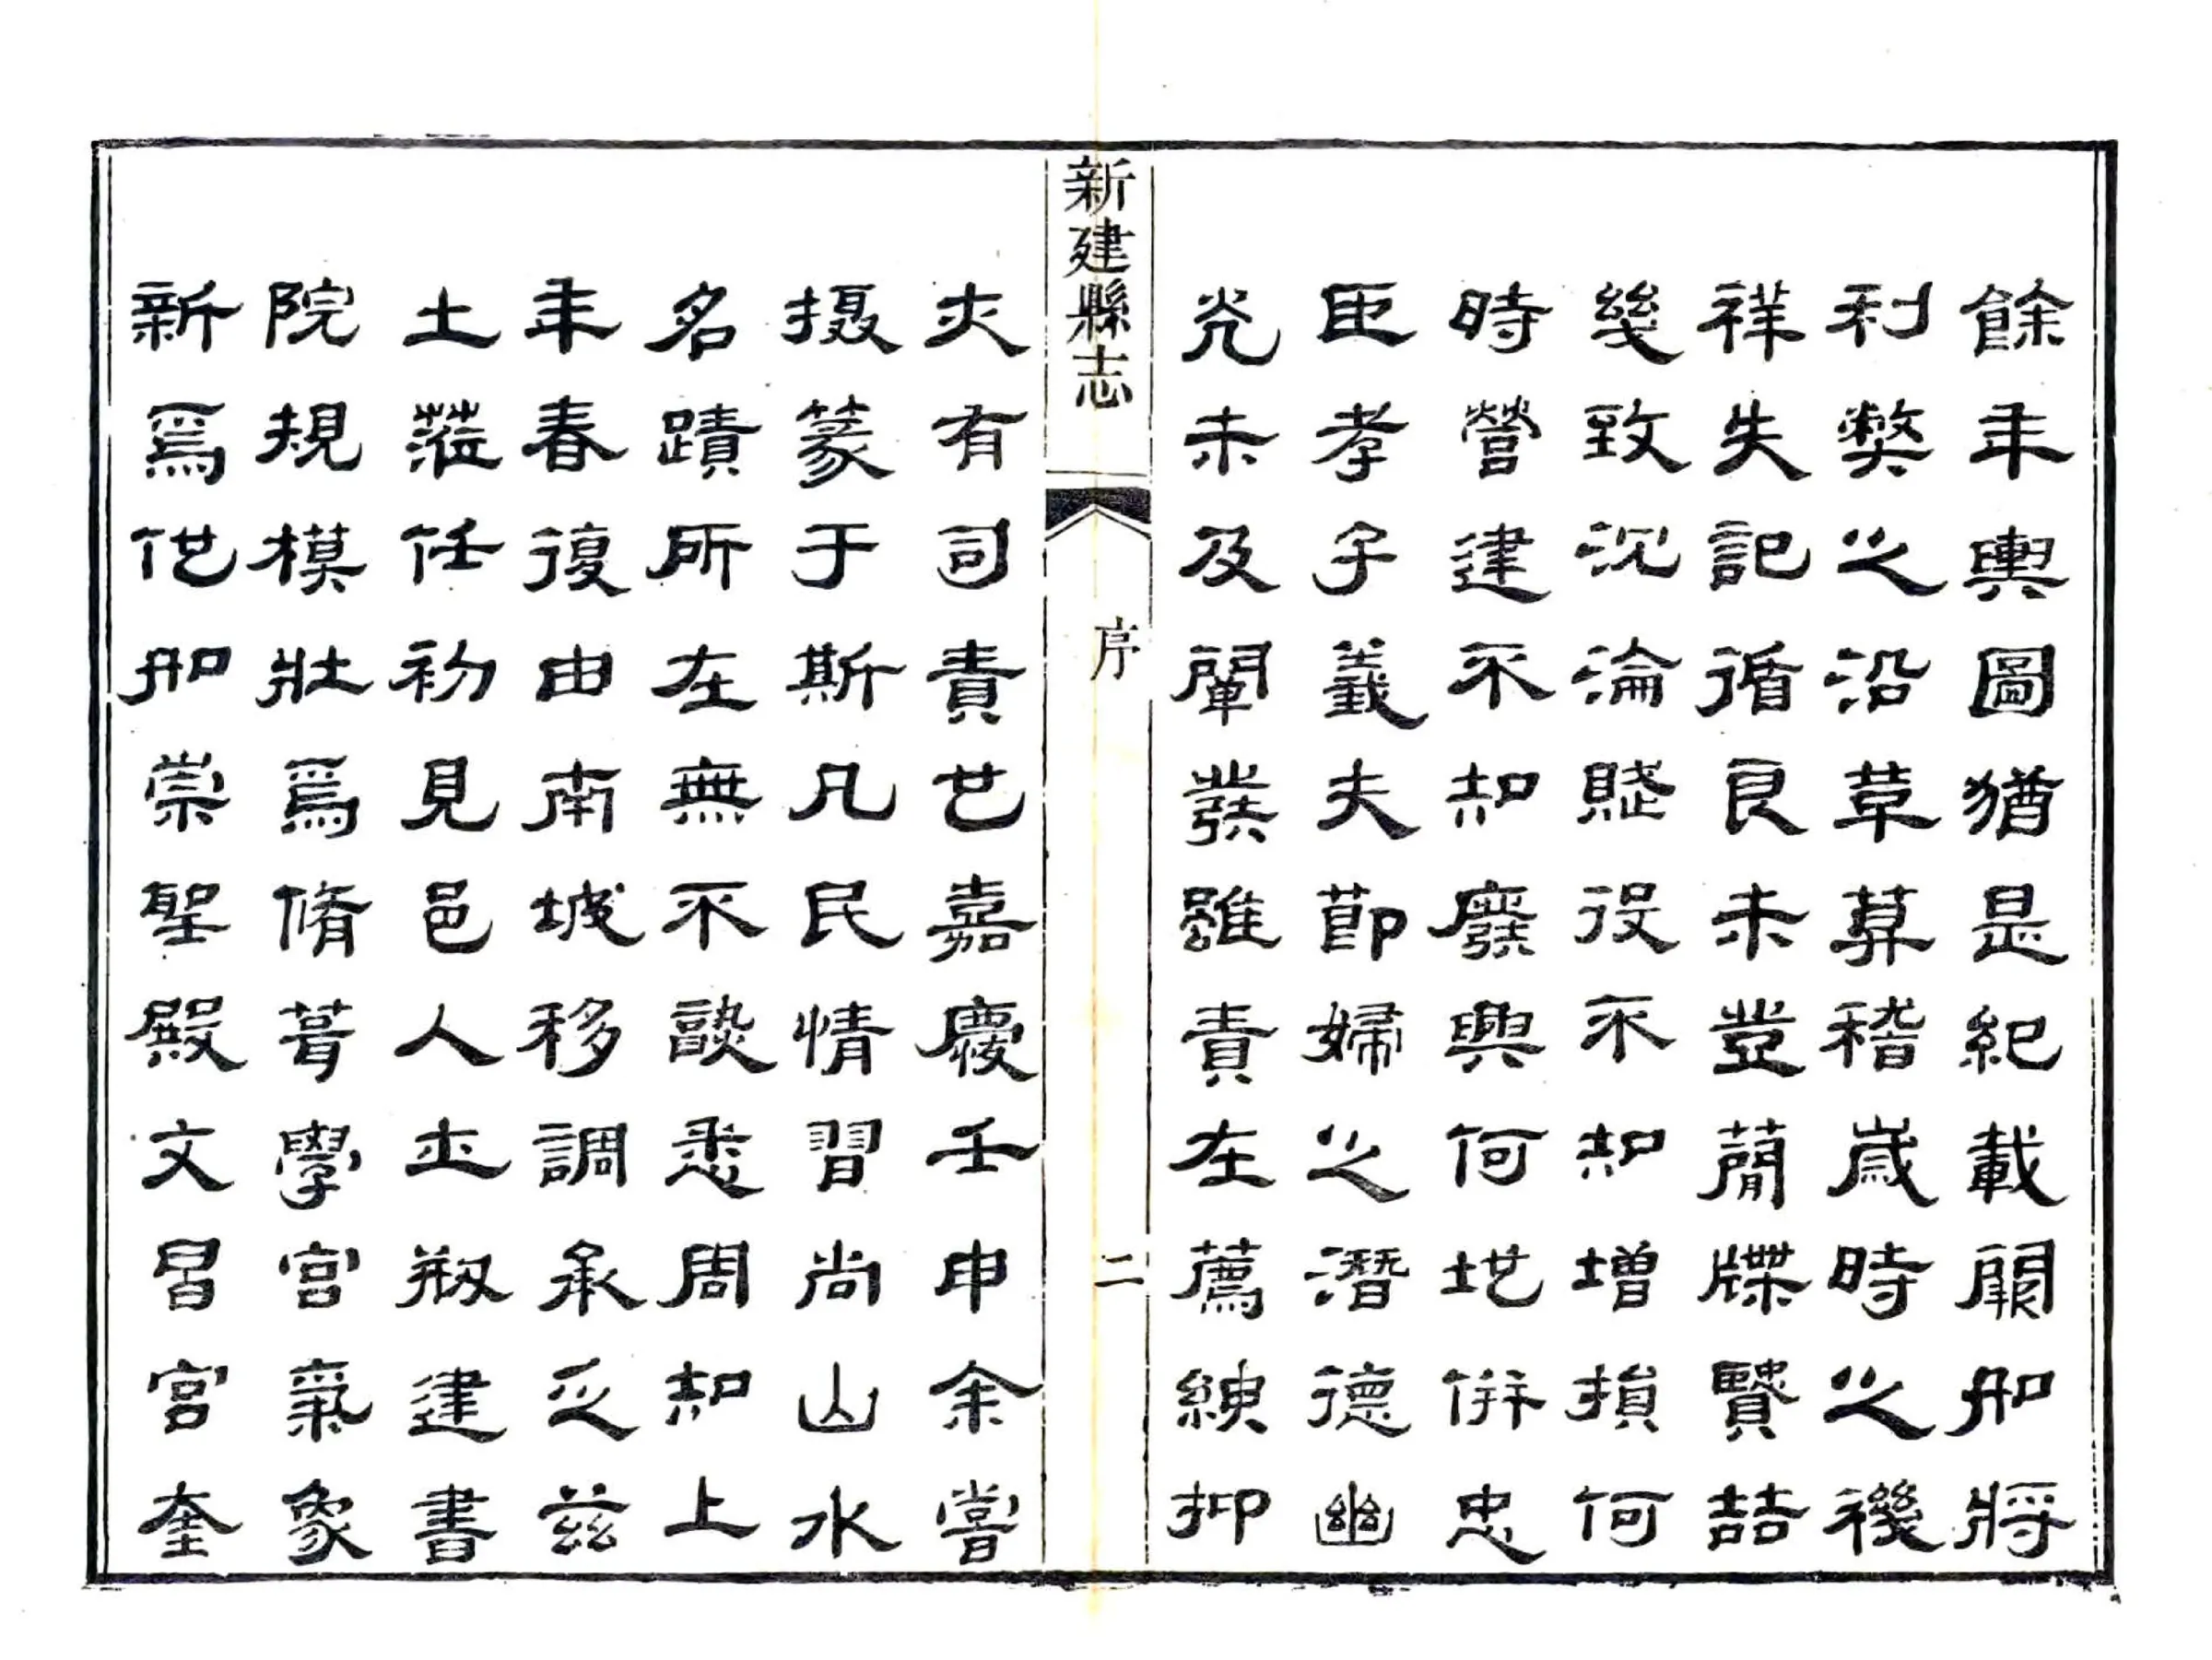 餘年輿圖猶是紀載闕如將
利弊之沿革莫稽歲時之禨
祥失記循良未登簡牒賢喆
幾致沉淪賦役不知增損何
時營建不知廢興何地併忠
臣孝子義夫節婦之潛德幽
光未及闡發雖責在薦紳抑
新建縣志
序
二
亦有司責也嘉慶壬申余嘗
攝篆于斯凡民情習尚山水
名蹟所在無不談悉周知上
年春復由南城移調承乏茲
土蒞任初見邑人士剏建書
院規模壯焉脩葺學宮氣象
新焉他如崇聖殿文昌宮奎